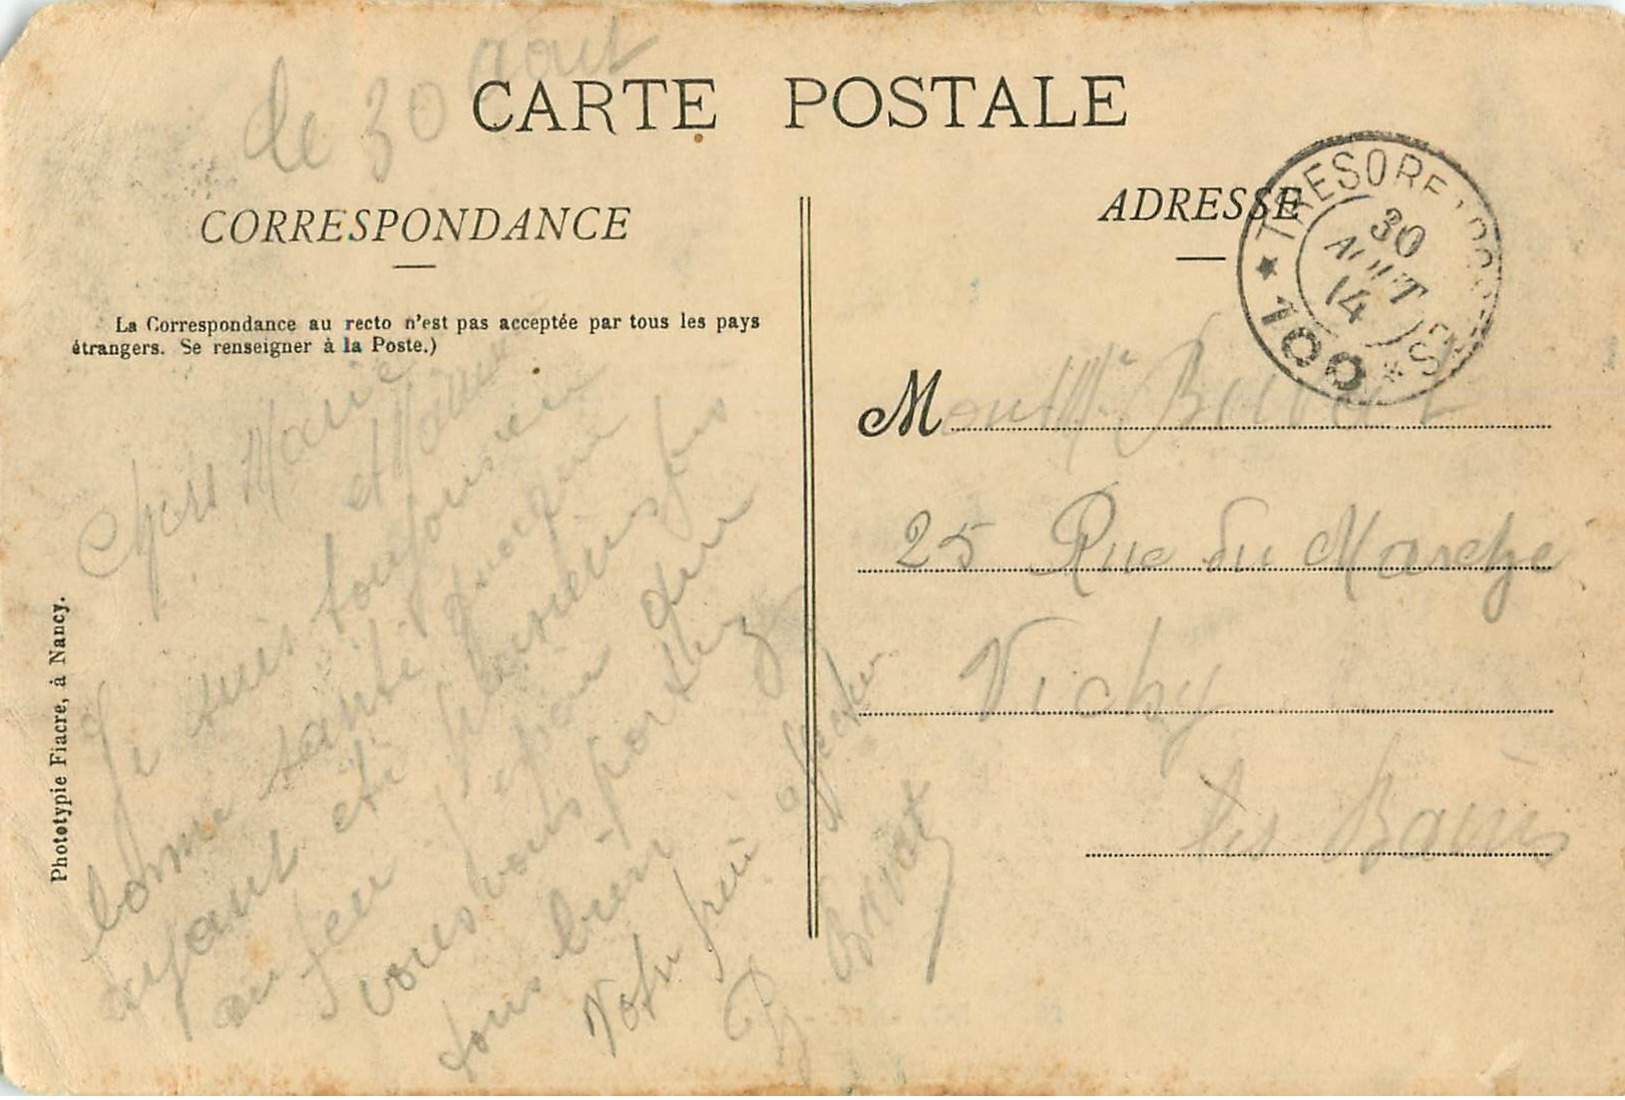 le 30 août
CARTE POSTALE
CORRESPONDANCE
ADRESSE
TRESOR ET POSTES
30
AOUT
14
* 100 *
La Correspondance au recto n'est pas acceptée par tous les pays
étrangers. Se renseigner à la Poste.)
Chers Marie
et
Je suis toujours en
bonne santé quoique
ayant été plusieurs fois
au feu j'espère que
vous vous portez
tous bien
Votre frère
Bonnat
Phototypie Fiacre, à Nancy.
M
25 Rue du Marche
Vichy
les Bains